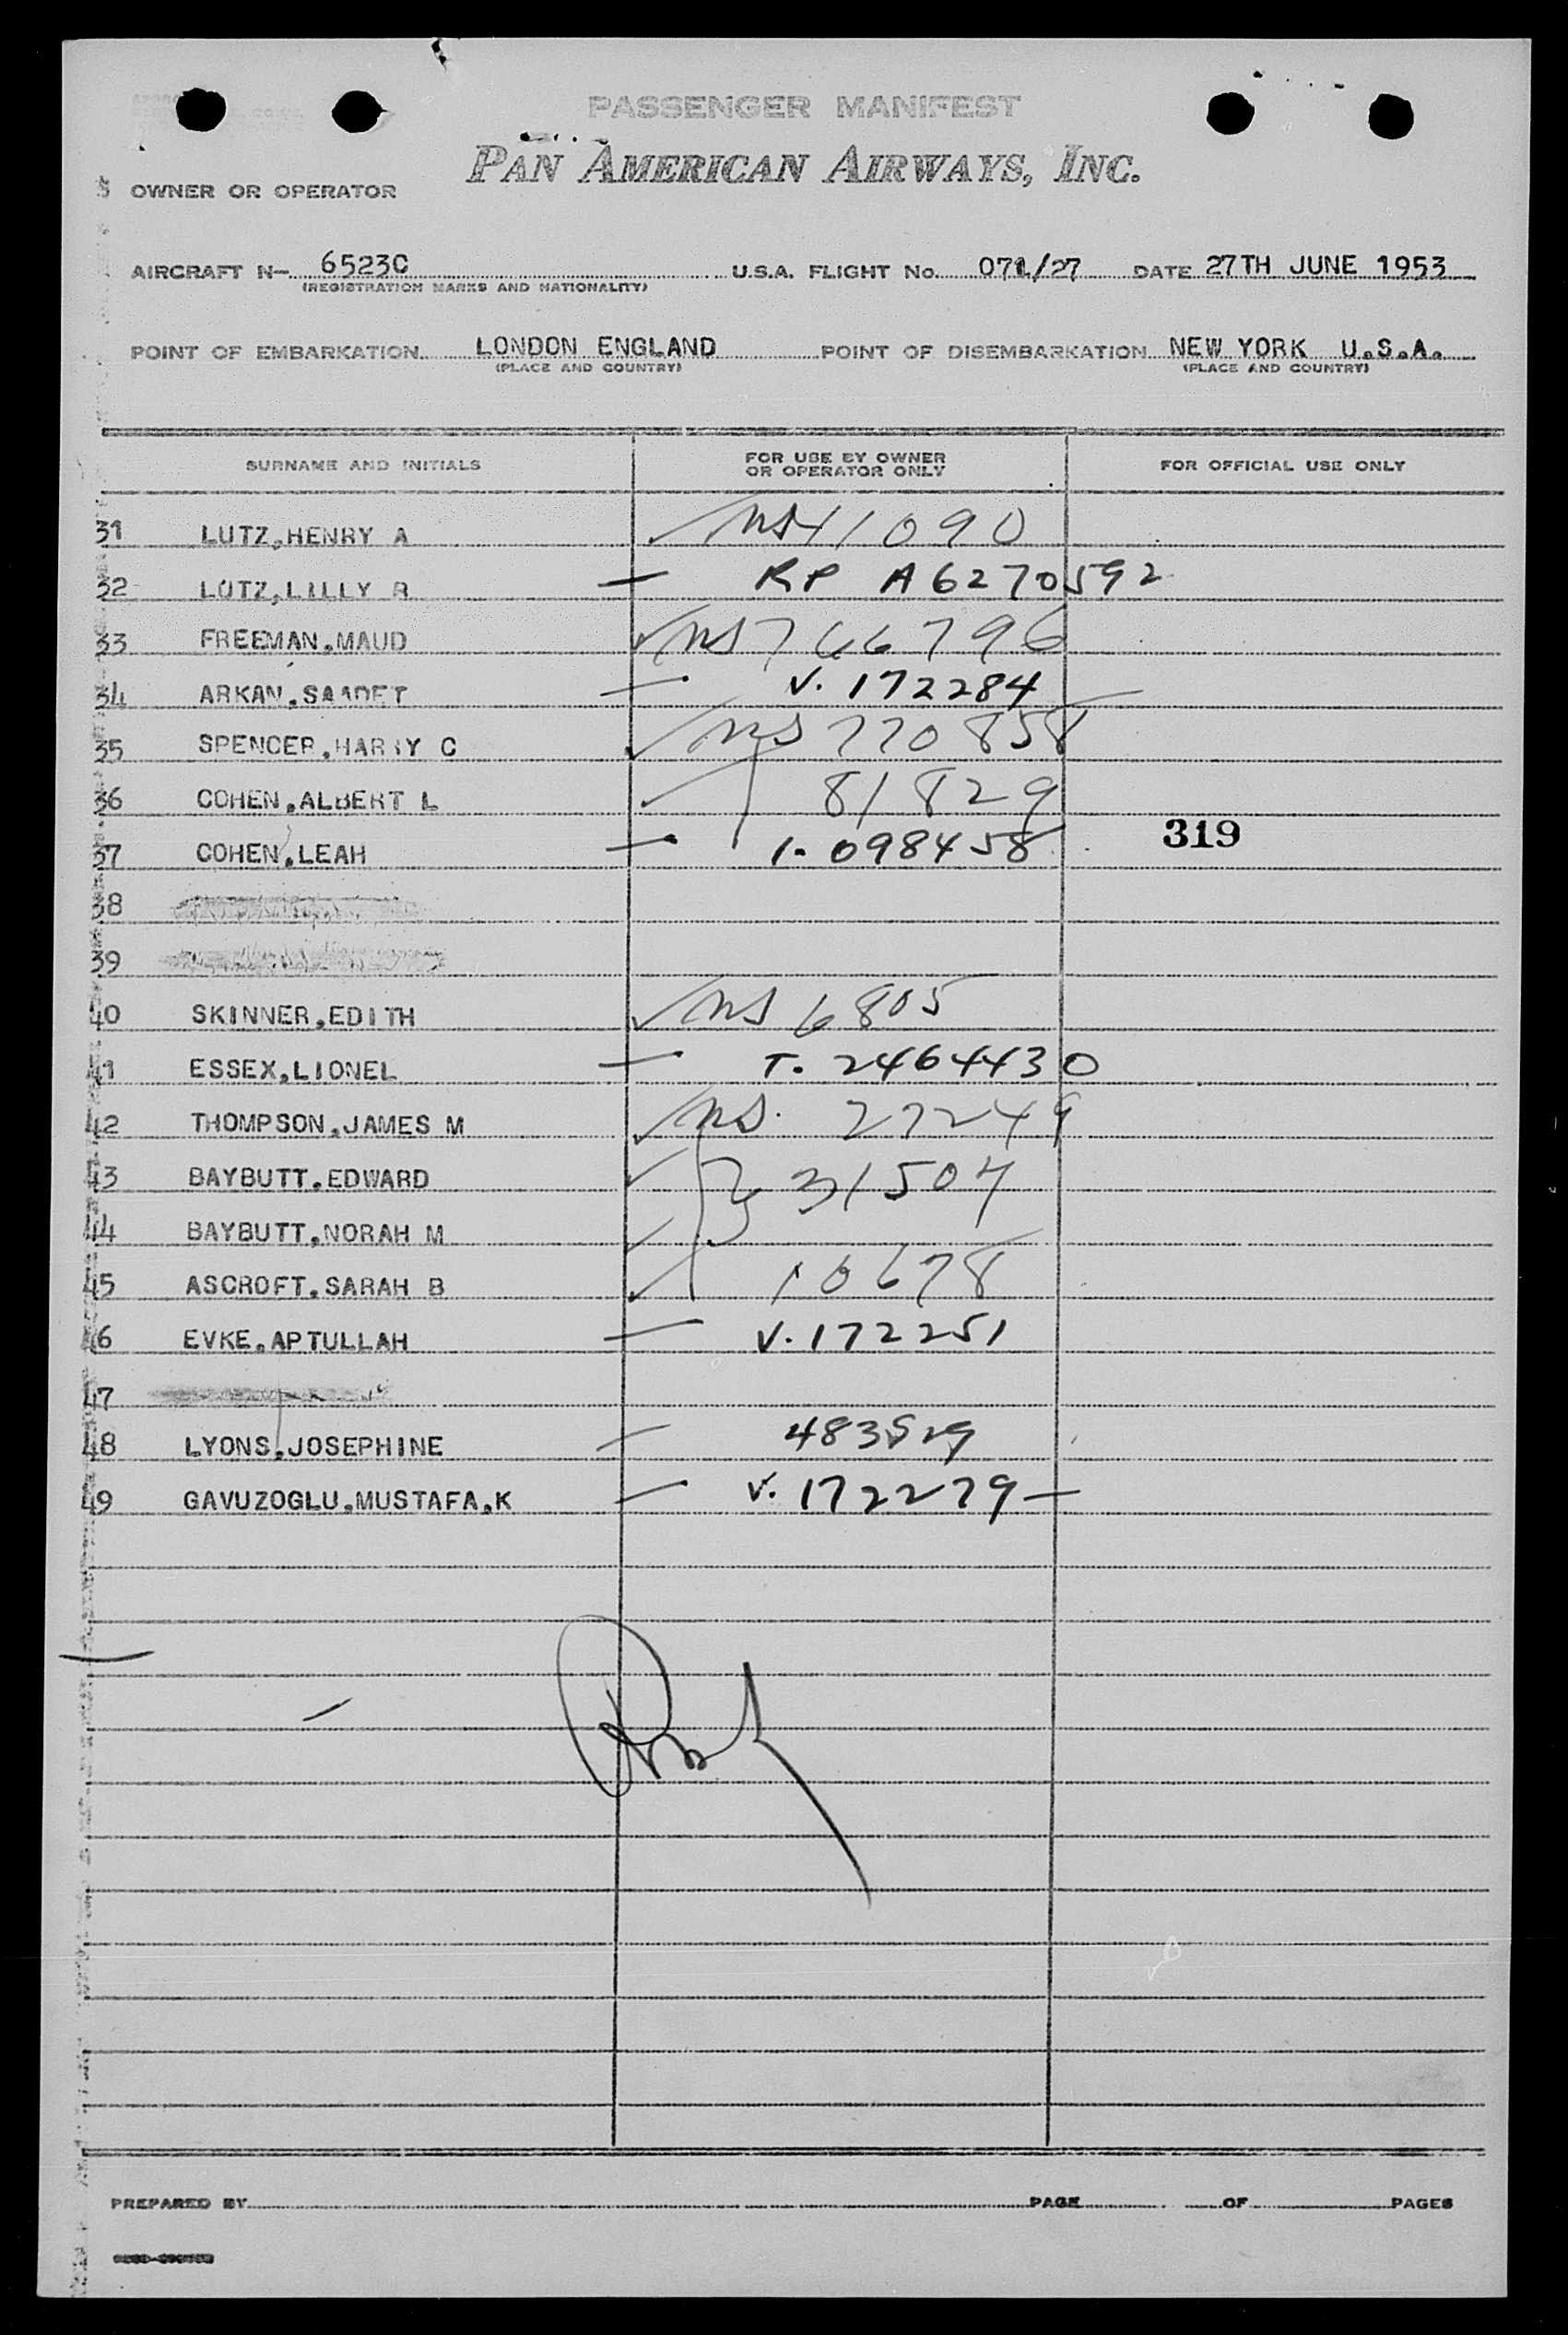 PASSENGER MANIFEST
PAN AMERICAN AIRWAYS, INC.
OWNER OR OPERATOR
AIRCRAFT N— 6523C U.S.A. FLIGHT No. 071/27 DATE 27TH JUNE 1953
(REGISTRATION MARKS AND NATIONALITY)
POINT OF EMBARKATION LONDON ENGLAND POINT OF DISEMBARKATION NEW YORK U.S.A.
(PLACE AND COUNTRY) (PLACE AND COUNTRY)
SURNAME AND INITIALS FOR USE BY OWNER OR OPERATOR ONLY FOR OFFICIAL USE ONLY
31 LUTZ,HENRY A ns 41090
32 LUTZ,LILLY R RP A6270592
33 FREEMAN,MAUD ns 766796
34 ARKAN,SAADET V. 172284
35 SPENCER,HARRY C ns 770858
36 COHEN,ALBERT L 81829
37 COHEN,LEAH 1-098458 319
38
39
40 SKINNER,EDITH ns 6805
41 ESSEX,LIONEL T. 2464430
42 THOMPSON,JAMES M ns. 27249
43 BAYBUTT,EDWARD 31507
44 BAYBUTT,NORAH M
45 ASCROFT,SARAH B 10678
46 EVKE,APTULLAH V. 172251
47
48 LYONS,JOSEPHINE 483529
49 GAVUZOGLU,MUSTAFA,K V. 172279
PREPARED BY PAGE OF PAGES